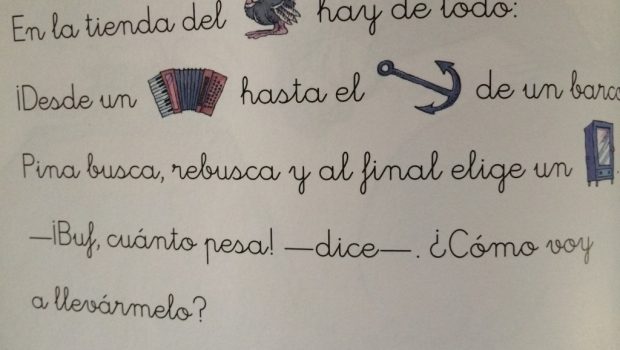 En la tienda del hay de todo:
¡Desde un hasta el de un barco
Pina busca, rebusca y al final elige un .
—¡Buf, cuánto pesa! —dice—. ¿Cómo voy
a llevármelo?